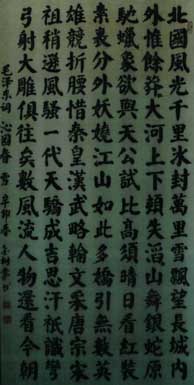 北國風光千里冰封萬里雪飄望長城内
外惟餘莽々大河上下頓失滔々山舞銀蛇原
馳蠟象欲與天公試比高須晴日看紅裝
素裹分外妖嬈江山如此多嬌引無數英
雄競折腰惜秦皇漢武略輸文采唐宗宋
祖稍遜風騷一代天驕成吉思汗祇識彎
弓射大雕俱往矣數風流人物還看今朝
毛泽东词 沁园春 雪 辛卯春 书